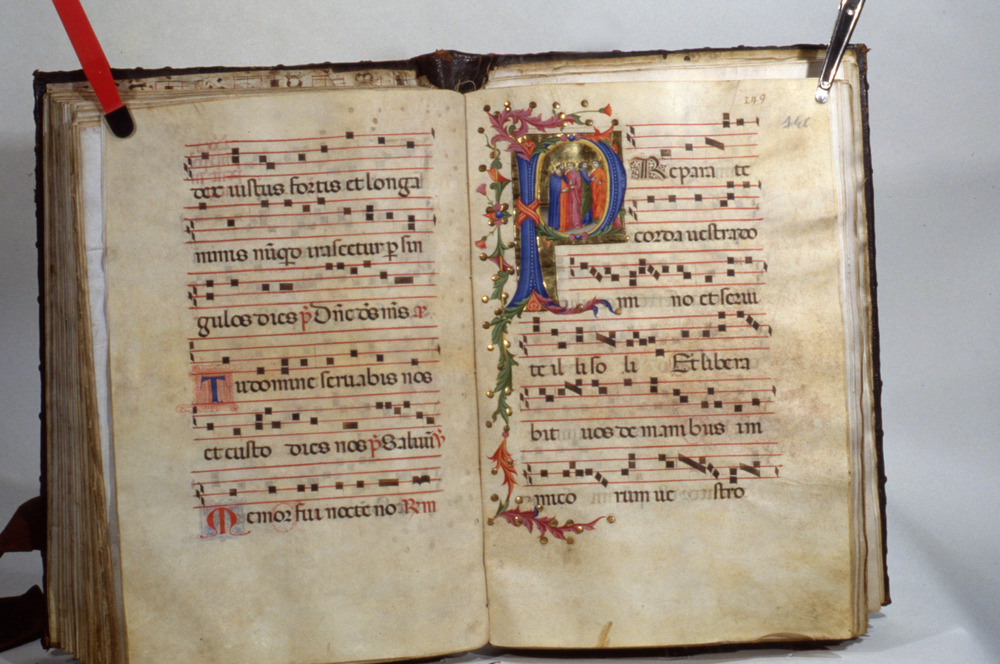 dex iustus fortis et longa
nimis nūqd irascetur p sin
gulos dies p Dñe ds ms
Tu domine seruabis nos
et custo dies nos p Saluū
Memor fui nocte no Rm
249
Prepara te
corda uestra do
mi no et serui
te il li so li Et libera
bit uos de mani bus im
mico rum ue stro